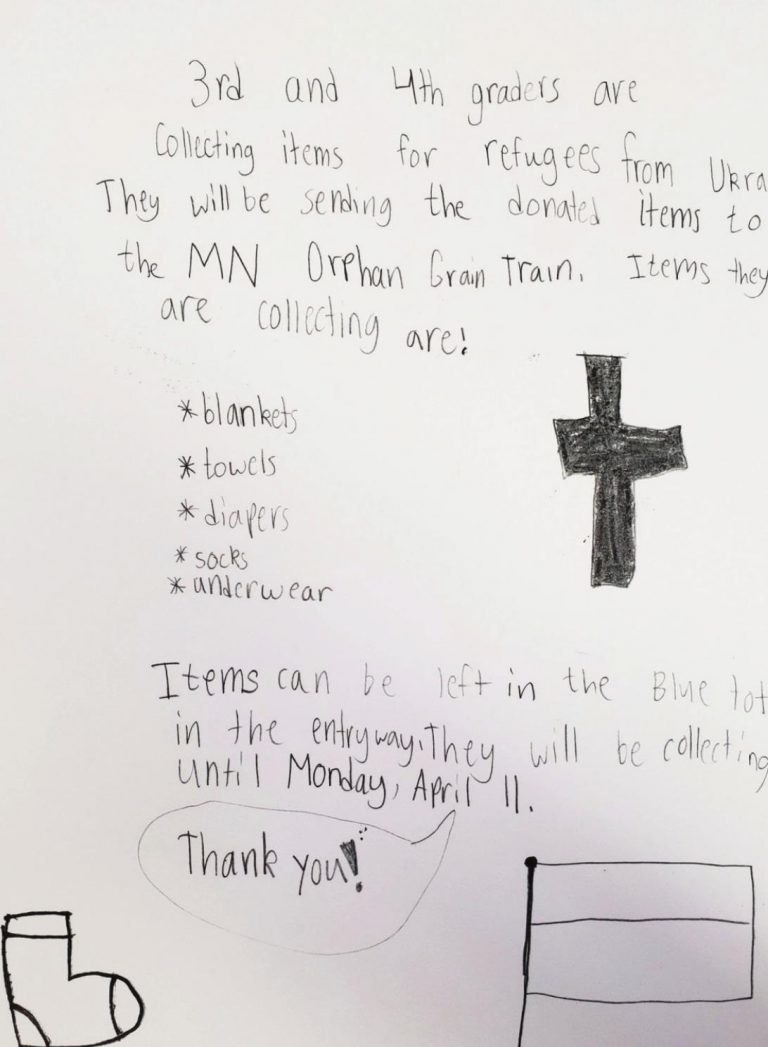 3rd and 4th graders are
Collecting items for refugees from Ukra
They will be sending the donated items to
the MN Orphan Grain Train. Items they
are collecting are!
*blankets
*towels
*diapers
*socks
*underwear
Items can be left in the Blue tot
in the entryway. They will be collecting
until Monday, April 11.
Thank you!